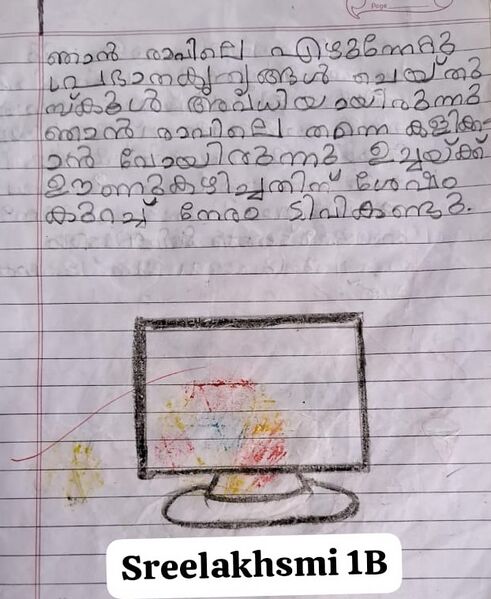 Page
ഞാൻ രാവിലെ എഴുന്നേറ്റു
പ്രഭാതകൃത്യങ്ങൾ ചെയ്തു
സ്കൂൾ അവധിയായിരുന്നു
ഞാൻ രാവിലെ തന്നെ കളിക്ക
ാൻ പോയിരുന്നു ഉച്ചയ്ക്ക്
ഊണുകഴിച്ചതിന് ശേഷം
കുറച്ച് നേരം ടിവികണ്ടു.
Sreelakhsmi 1B